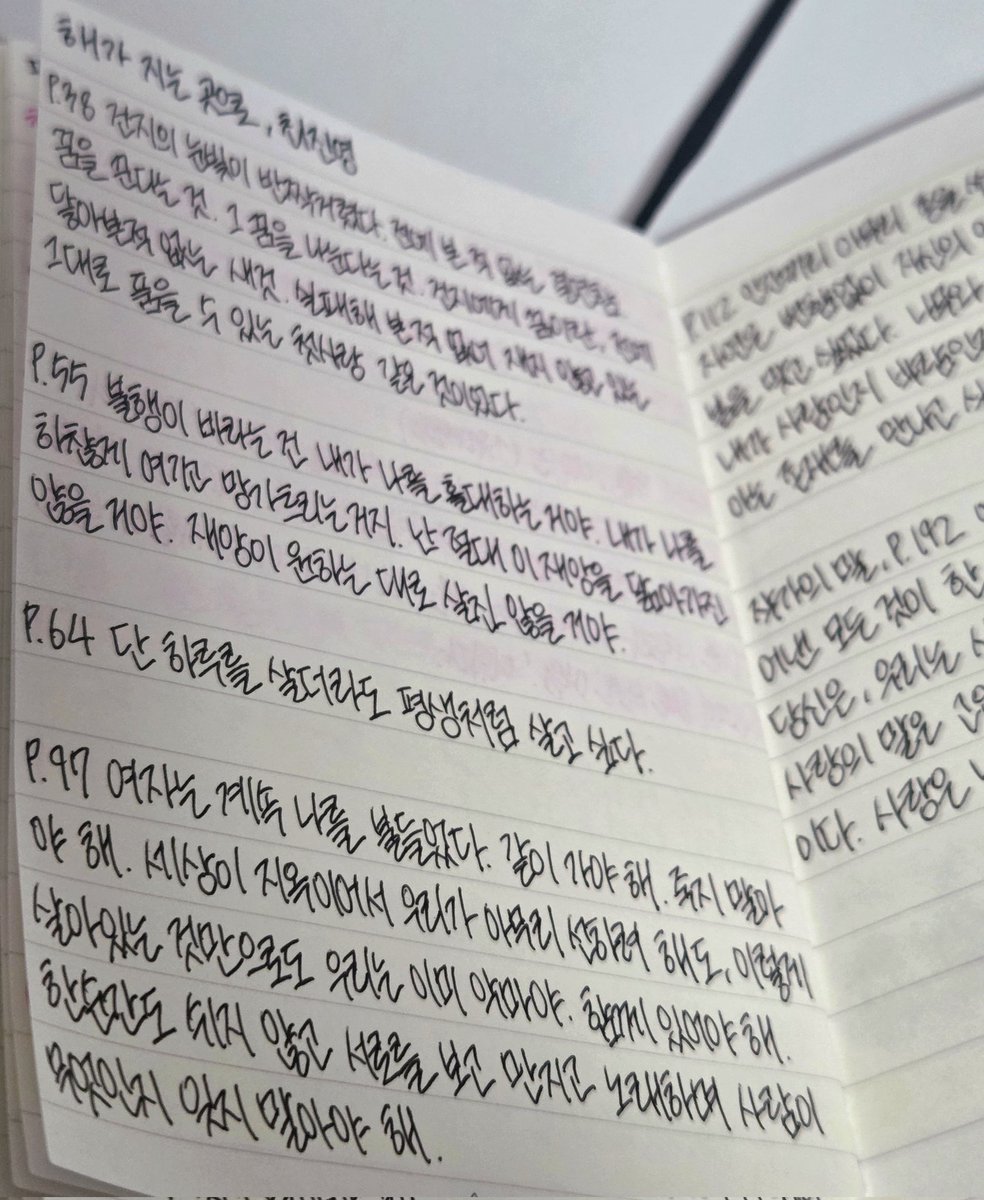 해가 지는 곳으로, 최진영
P.38 건지의 눈빛이 반짝거렸다. 전에 본 적 없는
꿈을 꾼다는 것. 그 꿈을 나눈다는 것. 건지에게 꿈이란, 전에
닿아본적 없는 새것. 실패해 본 적 없어 재지 않고 있는
그대로 품을 수 있는 첫사랑 같은 것이었다.
P.55 불행이 바라는 건 내가 나를 홀대하는 거야. 내가 나를
하찮게 여기고 망가트리는거지. 난 절대 이 재앙을 닮아가진
않을 거야. 재앙이 원하는 대로 살진 않을 거야.
P.64 단 하루를 살더라도 평생처럼 살고 싶다.
P.97 여자는 계속 나를 붙들었다. 같이 가야 해. 죽지 말아
야 해. 세상이 지옥이어서 우리가 아무리 선하려 해도, 이렇게
살아있는 것만으로도 우리는 이미 악마야. 함께 있어야 해.
한순간도 쉬지 않고 서로를 보고 만지고 노래하며 사람이
무엇인지 잊지 말아야 해.
P.112
자신은 변함없이 자신의
벌을 받고 싶었다. 나무와
내가 사람인지 바람인
아는 존재를 만나고
작가의 말, P.192
어낸 모든 것이 한
당신은, 우리는
사랑의 말을
이다. 사랑은